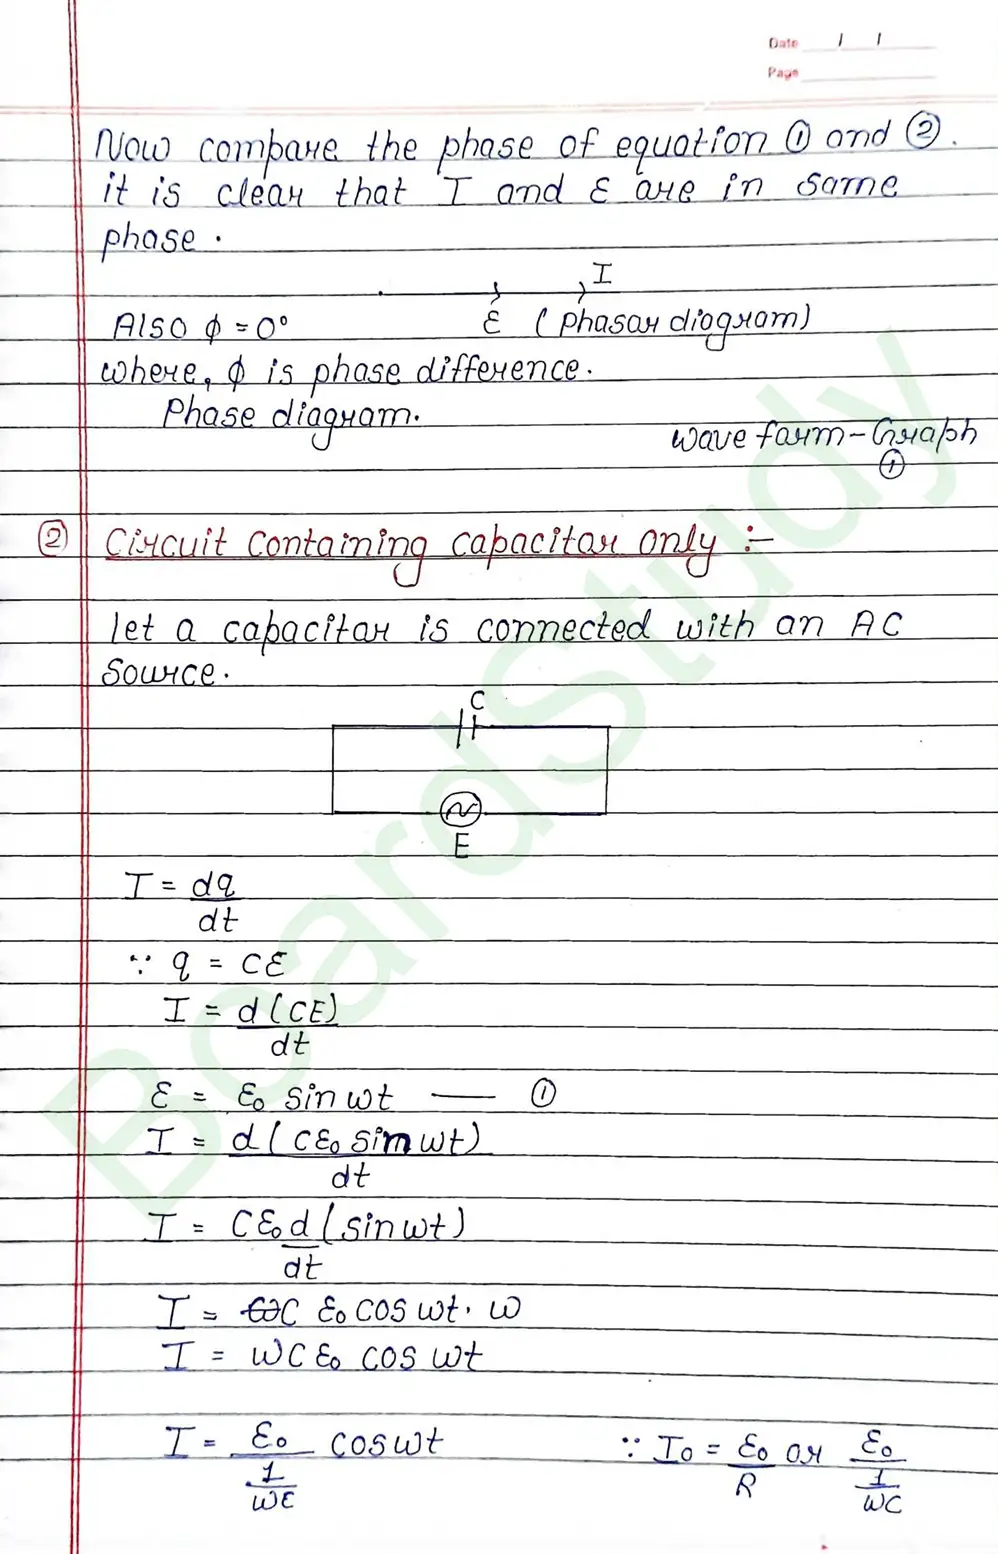 Date / /
Page
Now compare the phase of equation ① and ②.
it is clear that I and ε are in same
phase.
I
Also ϕ = 0° ε (Phasor diagram)
where, ϕ is phase difference.
Phase diagram.
wave form - Graph
①
② Circuit containing capacitor only :-
let a capacitor is connected with an AC
source.
C
E
I = dq/dt
∵ q = Cε
I = d(CE)/dt
ε = ε₀ sin ωt —— ①
I = d(Cε₀ sin ωt)/dt
I = Cε₀ d/dt (sin ωt)
I = C ε₀ cos ωt. ω
I = ωCε₀ cos ωt
I = ε₀/(1/ωC) cos ωt ∵ I₀ = ε₀/R or ε₀/(1/ωC)
BoardStudy